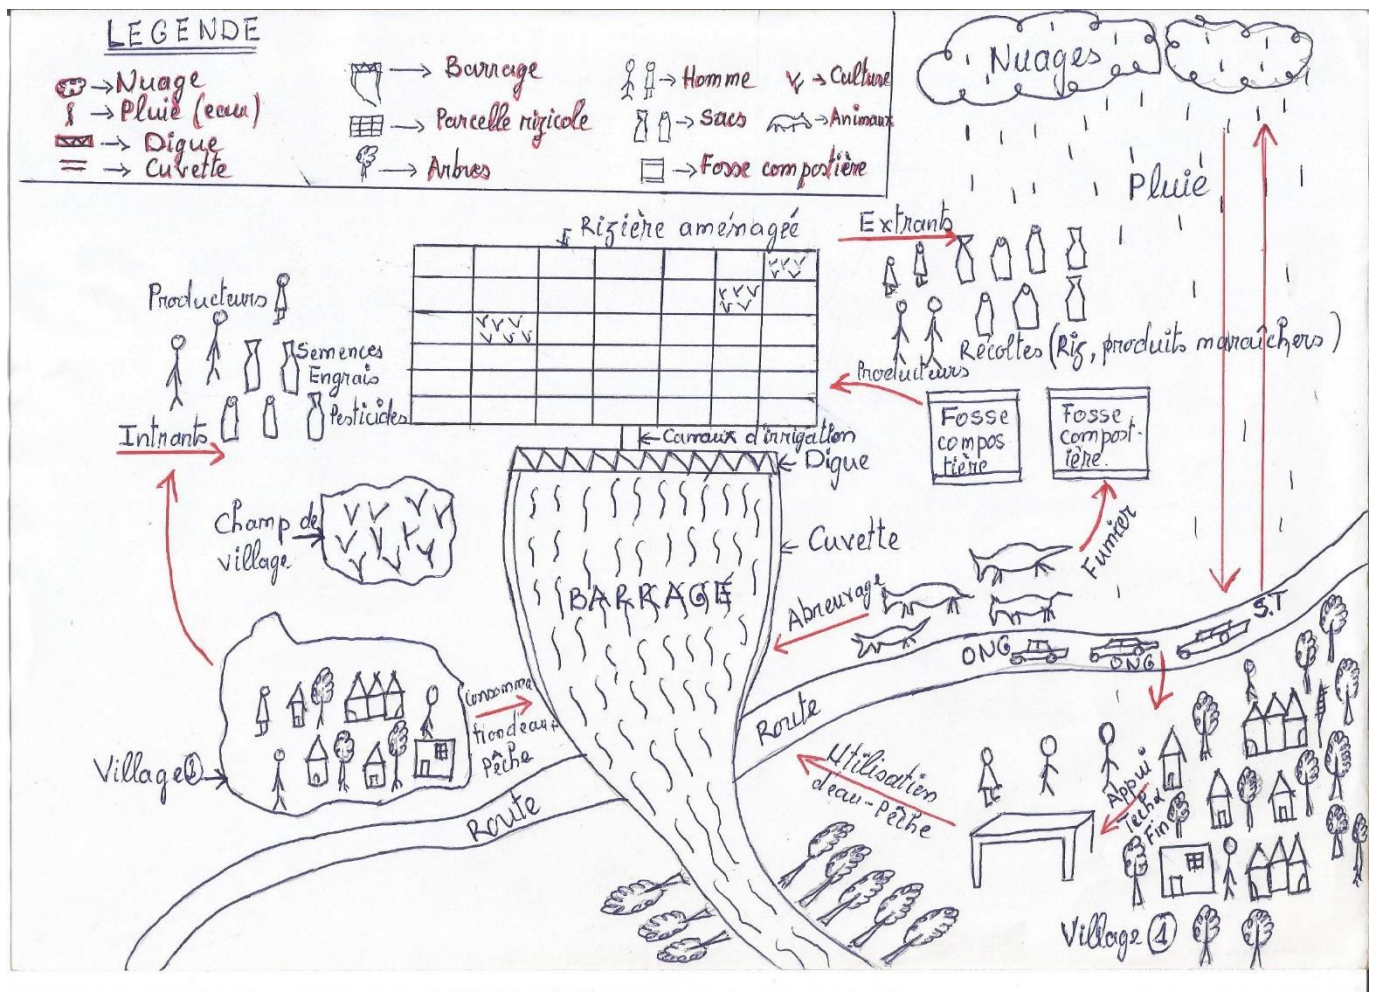 LEGENDE
Nuage
Pluie (eau)
Digue
Cuvette
Barrage
Parcelle rizicole
Arbres
Homme
Sacs
Fosse compostière
Culture
Animaux
Nuages
Pluie
Rizière aménageé
Extrants
Producteurs
Récoltes (Riz, produits maraîchers)
Producteurs
Semences
Engrais
Pesticides
Intrants
Canaux d'irrigation
Digue
Fosse
compos
tière
Fosse
compost-
ière.
Champ de
village
Cuvette
BARRAGE
Abreuvage
Fumier
S.T
ONG
ONG
Route
Consomma
tion d'eau
Pêche
Village 2
Route
Utilisation
d'eau-pêche
Appui
Tech
Fin
Village 1